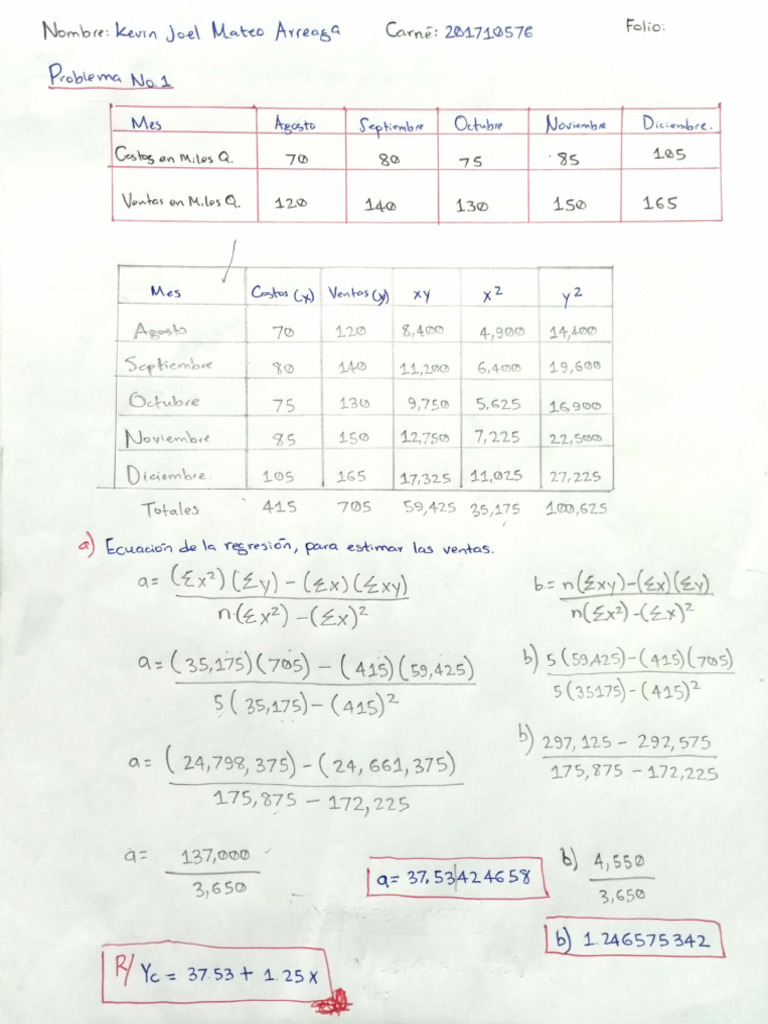 Nombre: Kevin Joel Mateo Arreaga Carné: 201710576 Folio:
Problema No.1
Mes Agosto Septiembre Octubre Noviembre Diciembre.
Costos en Miles Q. 70 80 75 85 105
Ventas en Miles Q. 120 140 130 150 165
Mes Costos (x) Ventas (y) xy x² y²
Agosto 70 120 8,400 4,900 14,400
Septiembre 80 140 11,200 6,400 19,600
Octubre 75 130 9,750 5,625 16,900
Noviembre 85 150 12,750 7,225 22,500
Diciembre. 105 165 17,325 11,025 27,225
Totales 415 705 59,425 35,175 100,625
a) Ecuación de la regresión, para estimar las ventas.
a= (Σx²)(Σy) - (Σx)(Σxy) b= n(Σxy)-(Σx)(Σy)
n·(Σx²) - (Σx)² n(Σx²)-(Σx)²
a= (35,175)(705) - (415)(59,425) b) 5(59,425)-(415)(705)
5(35,175)-(415)² 5(35175)-(415)²
a= (24,798,375)-(24,661,375) b) 297,125 - 292,575
175,875 - 172,225 175,875 - 172,225
a= 137,000 a= 37.53424658 b) 4,550
3,650 3,650
b) 1.246575342
R/ Yc = 37.53 + 1.25x